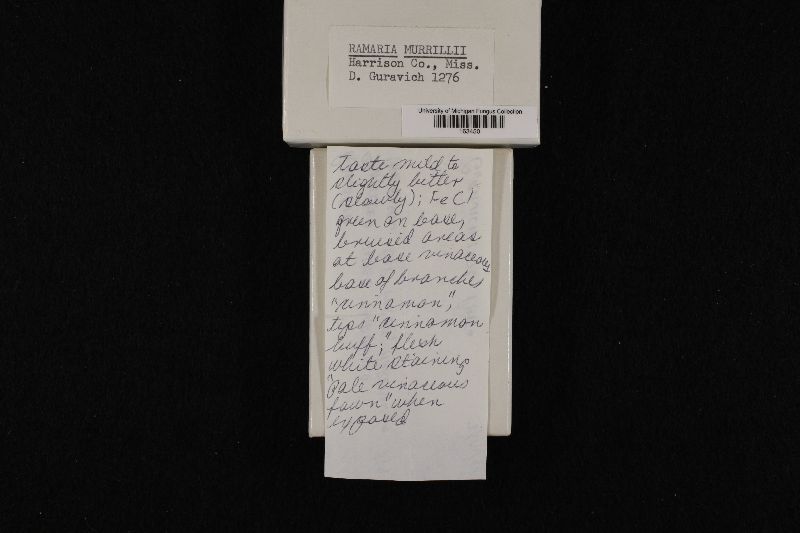 RAMARIA MURRILLII
Harrison Co., Miss.
D. Guravich 1276
University of Michigan Fungus Collection
163450
taste mild to
slightly bitter
(slowly); FeCl
green on base,
bruised areas
at base vinaceous
base of branches
"cinnamon",
tips "cinnamon
buff;" flesh
white staining
"pale vinaceous
fawn" when
exposed